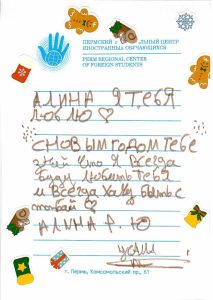 ПЕРМСКИЙ РЕГИОНАЛЬНЫЙ ЦЕНТР
ИНОСТРАННЫХ ОБУЧАЮЩИХСЯ
PERM REGIONAL CENTER
OF FOREIGN STUDENTS
АЛИНА Я ТЕБЯ
ЛЮБЛЮ ♡
С НОВЫМ ГОДОМ ТЕБЕ
ЗНАЙ ЧТО Я ВСЕГДА
БУДУ ЛЮБИТЬ ТЕБЯ
И ВСЕГДА ХОЧУ БЫТЬ С
ТОБОЙ ♡
АЛИНА Р. Ю
г. Пермь, Комсомольский пр., 61